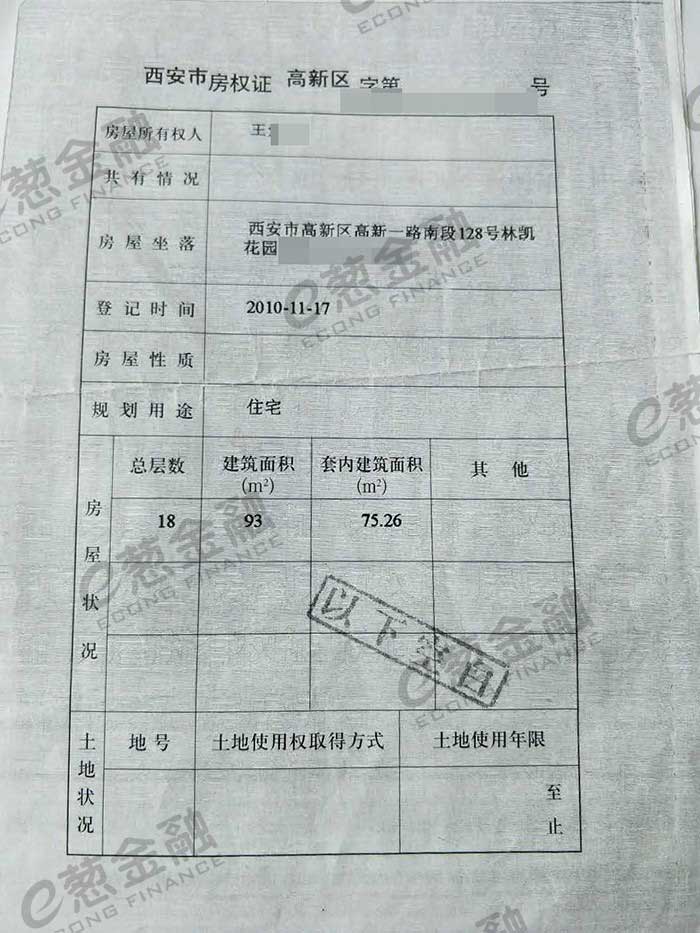 西安市房权证 高新区 字第 号
房屋所有权人 王
共有情况
房屋坐落 西安市高新区高新一路南段128号林凯
花园
登记时间 2010-11-17
房屋性质
规划用途 住宅
房屋状况
总层数 建筑面积 套内建筑面积 其他
(m²) (m²)
18 93 75.26
以下空白
土地状况
地号 土地使用权取得方式 土地使用年限
至
止
e葱金融
ECONG FINANCE
e葱金融
ECONG FINANCE
e葱金融
ECONG FINANCE
e葱金融
ECONG FINANCE
e葱金融
ECONG FINANCE
e葱金融
ECONG FINANCE